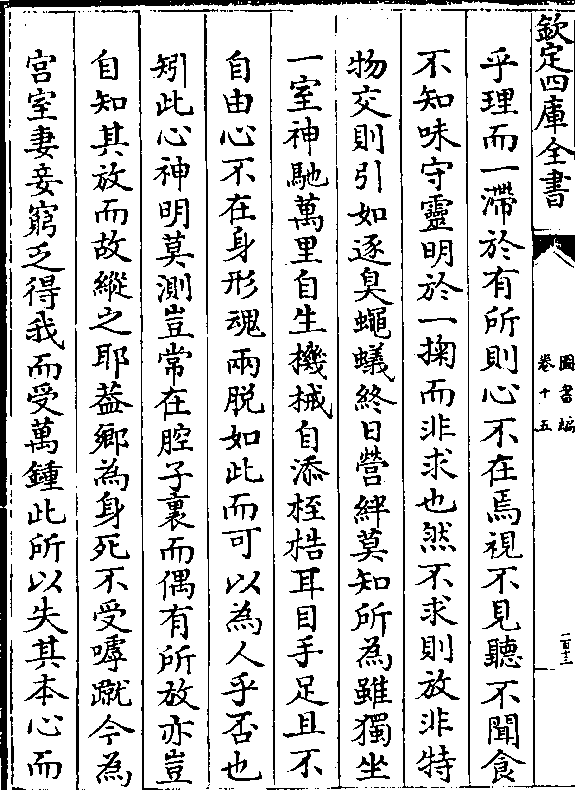 欽定四庫全書
圖書編
卷十五
乎理而一滯於有所則心不在焉視不見聽不聞食
不知味守靈明於一掬而非求也然不求則放非特
物交則引如逐臭蠅蟻終日營絆莫知所為雖獨坐
一室神馳萬里自生機械自添桎梏耳目手足且不
自由心不在身形魂兩脫如此而可以為人乎否也
矧此心神明莫測豈常在腔子裏而偶有所放亦豈
自知其放而故縱之耶葢鄉為身死不受嘑蹴今為
宮室妻妾窮乏得我而受萬鍾此所以失其本心而